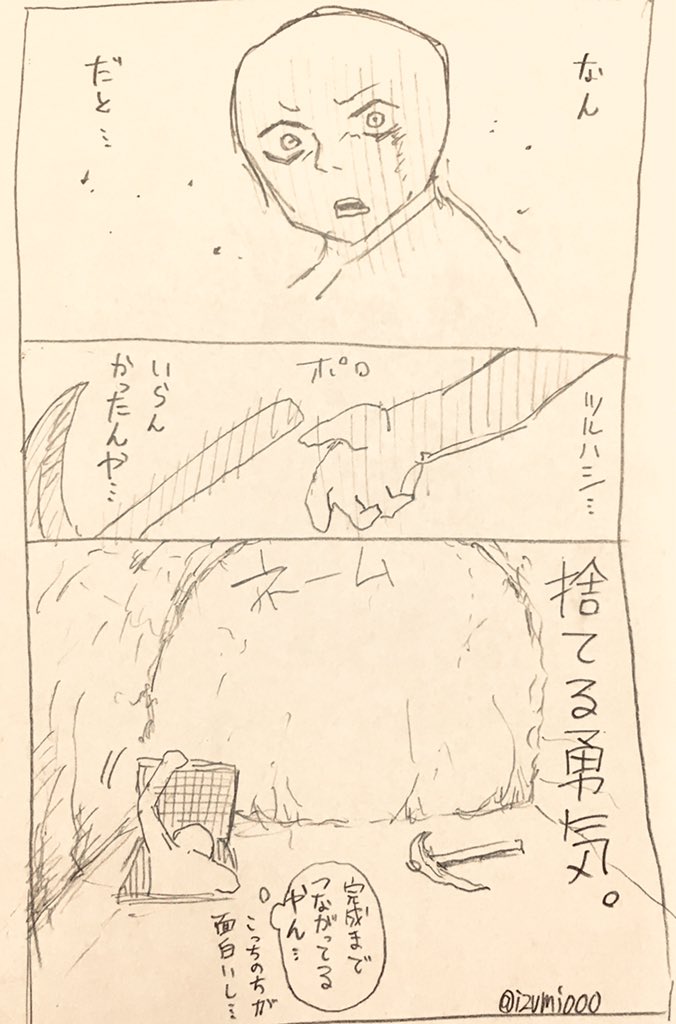 なん
だと…
ツルハシ…
ポロ
いらん
かったんや…
捨てる勇気。
ネーム
完成まで
つながってる
やん…
こっちの方が
面白いし…
@izumi000